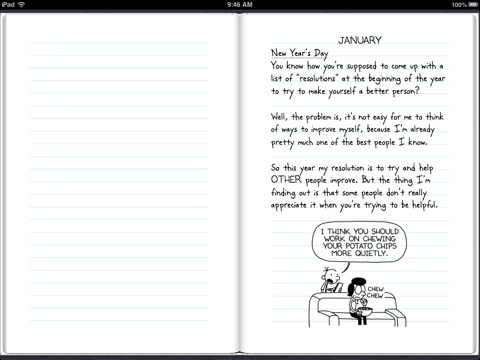 iPad 9:46 AM 100%
JANUARY
New Year's Day
You know how you're supposed to come up with a
list of "resolutions" at the beginning of the year
to try to make yourself a better person?
Well, the problem is, it's not easy for me to think
of ways to improve myself, because I'm already
pretty much one of the best people I know.
So this year my resolution is to try and help
OTHER people improve. But the thing I'm
finding out is that some people don't really
appreciate it when you're trying to be helpful.
I THINK YOU SHOULD
WORK ON CHEWING
YOUR POTATO CHIPS
MORE QUIETLY.
CHEW
CHEW